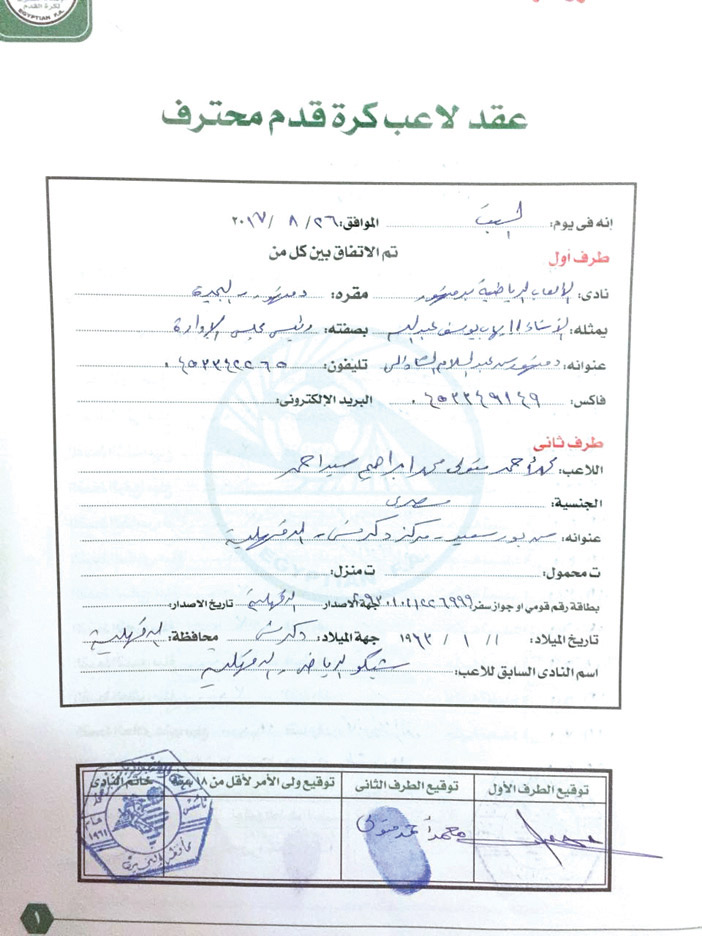 لكرة القدم
EGYPTIAN F.A.
عقد لاعب كرة قدم محترف
إنه فى يوم: السبت الموافق: ٢٦ / ٨ / ٢٠١٧
تم الاتفاق بين كل من
طرف أول
نادى: الألعاب الرياضية بدمنهور مقره: دمنهور - البحيرة
يمثله: الأستاذ / إيهاب يوسف عبد بصفته: رئيس مجلس الإدارة
عنوانه: دمنهور ش عبد السلام الشاذلى تليفون: ٠٤٥٣٣٤٢٢٦٥
فاكس: ٠٤٥٣٣٤٩١٤٩ البريد الإلكترونى:
طرف ثانى
اللاعب: محمد أحمد متولى محمد إبراهيم سيد احمد
الجنسية: مصرى
عنوانه: ش بور سعيد - مركز دكرنس - الدقهلية
ت محمول: ت منزل:
بطاقة رقم قومي او جواز سفر: جهة الاصدار الدقهلية تاريخ الاصدار:
تاريخ الميلاد: ١ / ١ / جهة الميلاد: دكرنس محافظة: الدقهلية
اسم النادى السابق للاعب: الرياضى - الدقهلية
توقيع الطرف الأول توقيع الطرف الثانى توقيع ولى الأمر لأقل من ١٨ سنة خاتم النادى
محمد أحمد متولى
تأسس
عام
١٩٦١
محافظة البحيرة
١